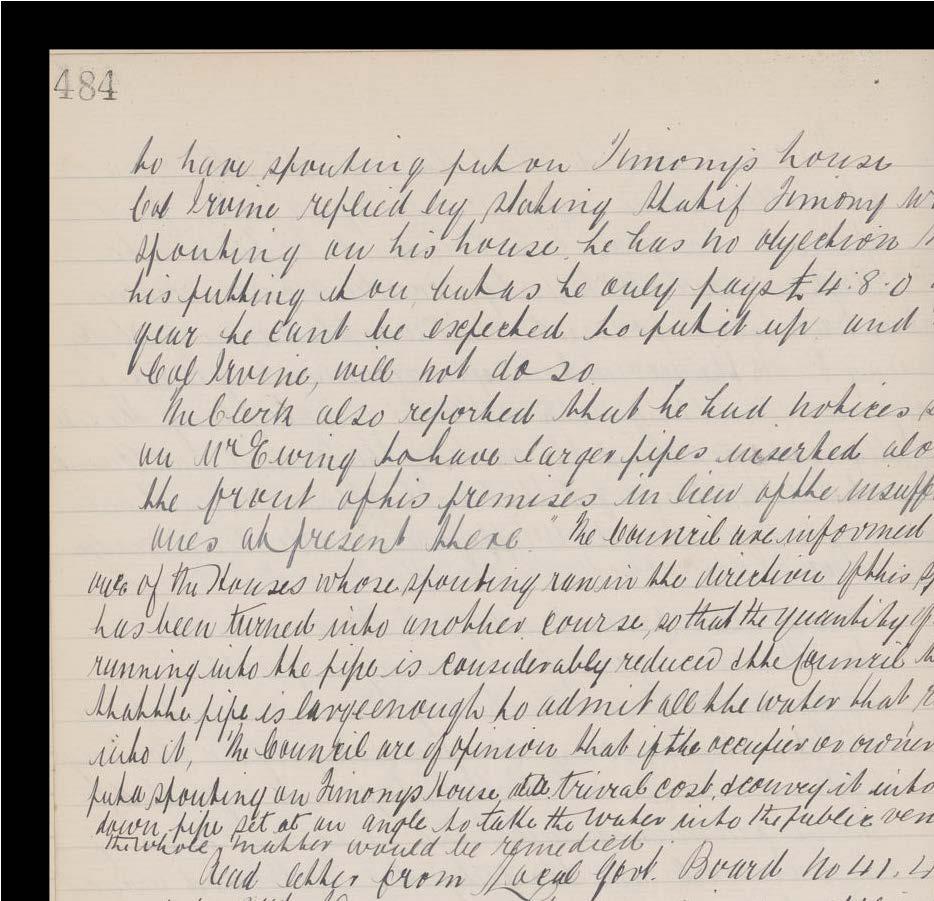 484
to have spouting put on Timony's house
Col Irvine replied by stating that if Timony
spouting on his house, he has no objection
his putting it on, but as he only pays £4.8.0
year he cant be expected to put it up and
Col Irvine, will not do so
The Clerk also reported that he had notices
on Mr Ewing to have larger pipes inserted
the front of his premises in lieu of the
ones at present there." The Council are informed
one of the Houses whose spouting ran in the direction of this
has been turned into another course, so that the quantity of
running into the pipe is considerably reduced & the Council
that the pipe is large enough to admit all the water that
into it, The Council are of opinion that if the occupier or owner
put a spouting on Timonys House, at a trivial cost, & convey it into
down pipe set at an angle to take the water into the public
the whole matter would be remedied.
Read letter from Local Govt. Board No 41.